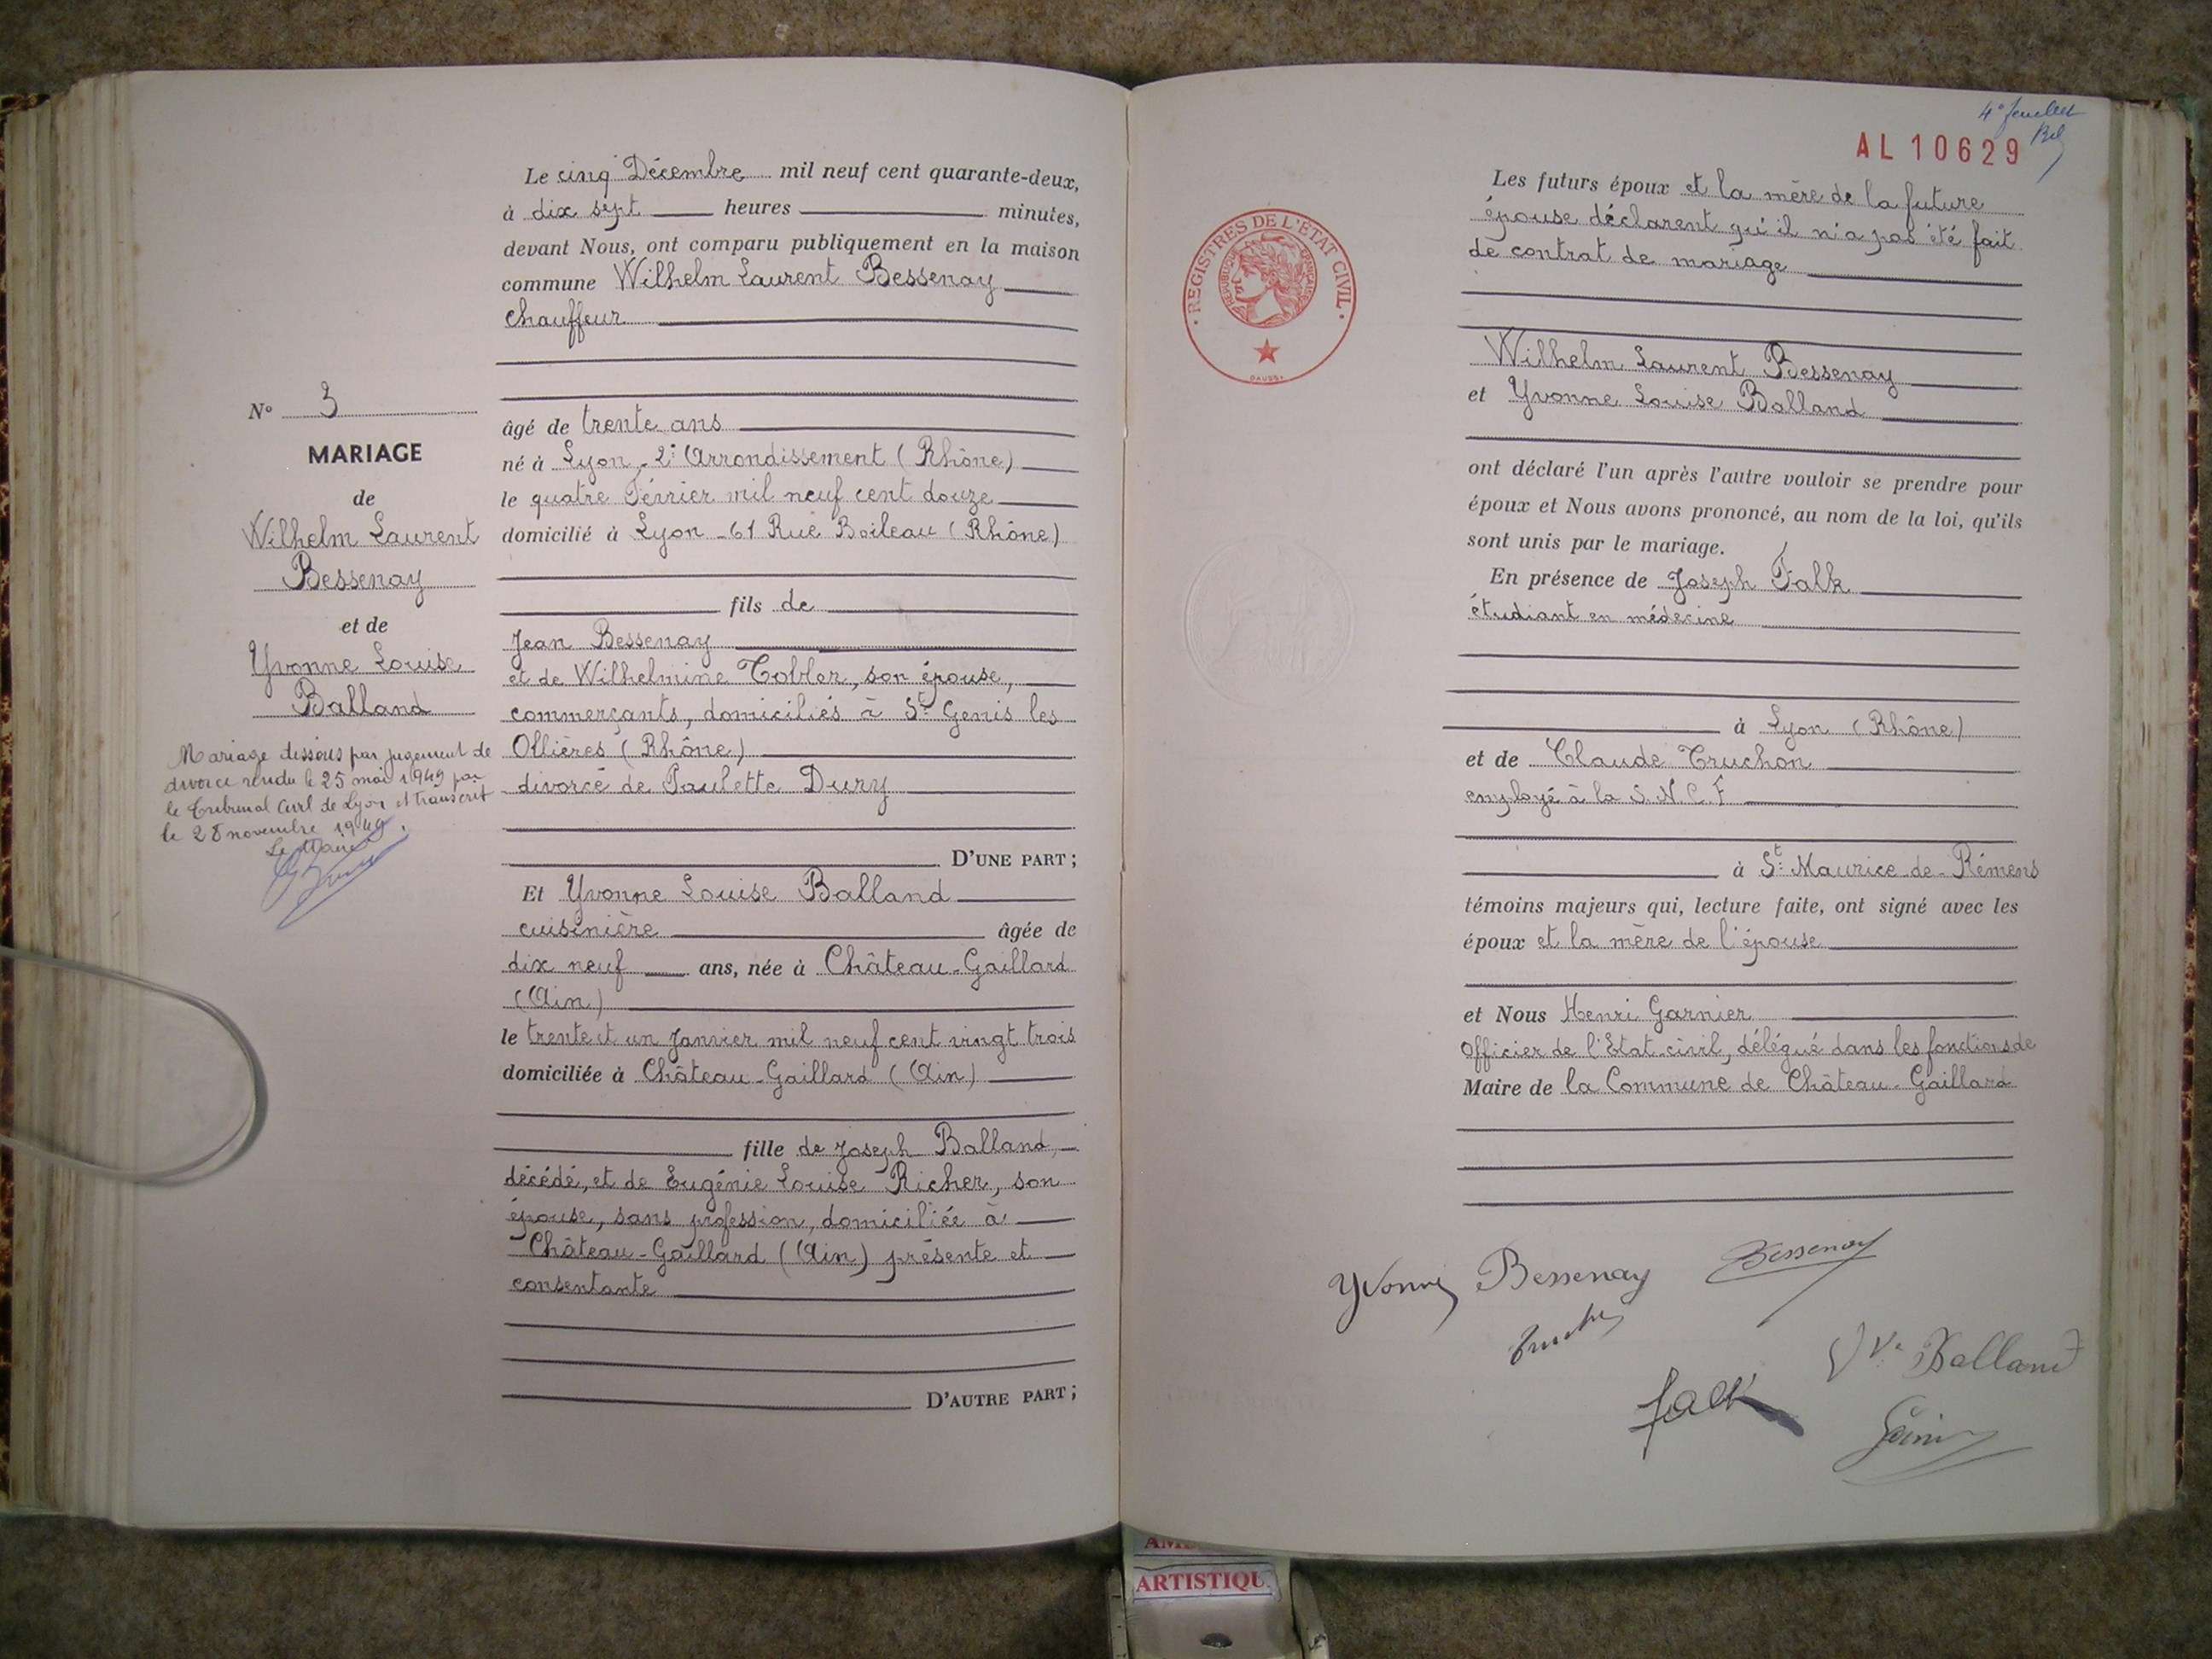 N° 3
MARIAGE
de
Wilhelm Laurent
Bessenay
et de
Yvonne Louise
Balland
Mariage dissous par jugement de
divorce rendu le 25 mai 1949 par
le Tribunal Civil de Lyon et transcrit
le 28 novembre 1949.
Le Maire
Le cinq Décembre mil neuf cent quarante-deux,
à dix sept heures minutes,
devant Nous, ont comparu publiquement en la maison
commune Wilhelm Laurent Bessenay
chauffeur
âgé de trente ans
né à Lyon, 2e Arrondissement (Rhône)
le quatre Février mil neuf cent douze
domicilié à Lyon - 61 Rue Boileau (Rhône)
fils de
Jean Bessenay
et de Wilhelmine Tobler, son épouse,
commerçants, domiciliés à St Genis les
Ollières (Rhône)
divorcé de Paulette Dury
D'UNE PART ;
Et Yvonne Louise Balland
cuisinière âgée de
dix neuf ans, née à Château-Gaillard
(Ain)
le trente et un Janvier mil neuf cent vingt trois
domiciliée à Château-Gaillard (Ain)
fille de Joseph Balland,
décédé, et de Eugénie Louise Richer, son
épouse, sans profession, domiciliée à
Château-Gaillard (Ain) présente et
consentante
D'AUTRE PART ;
4e feuillet
AL 10629
REGISTRES DE L'ÉTAT CIVIL
RÉPUBLIQUE FRANÇAISE
Les futurs époux et la mère de la future
épouse déclarent qu'il n'a pas été fait
de contrat de mariage
Wilhelm Laurent Bessenay
et Yvonne Louise Balland
ont déclaré l'un après l'autre vouloir se prendre pour
époux et Nous avons prononcé, au nom de la loi, qu'ils
sont unis par le mariage.
En présence de Joseph Falk
étudiant en médecine
à Lyon (Rhône)
et de Claude Truchon
employé à la S.N.C.F
à St Maurice-de-Rémens
témoins majeurs qui, lecture faite, ont signé avec les
époux et la mère de l'épouse
et Nous Henri Garnier
Officier de l'Etat-civil, délégué dans les fonctions de
Maire de la Commune de Château-Gaillard
Yvonne Bessenay Bessenay
Vve Balland
Falk
ARTISTIQU